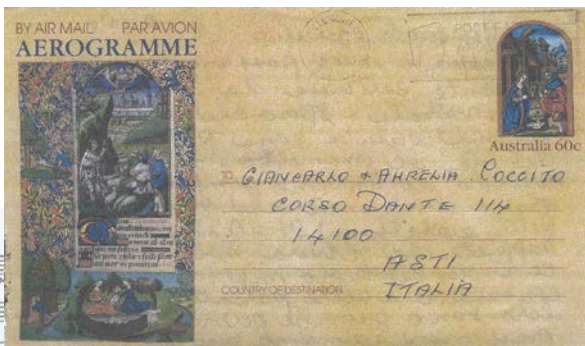 BY AIR MAIL PAR AVION
AEROGRAMME
Australia 60c
TO GIANCARLO + AHRELIA COCCITO
CORSO DANTE 114
14100
ASTI
COUNTRY OF DESTINATION ITALIA